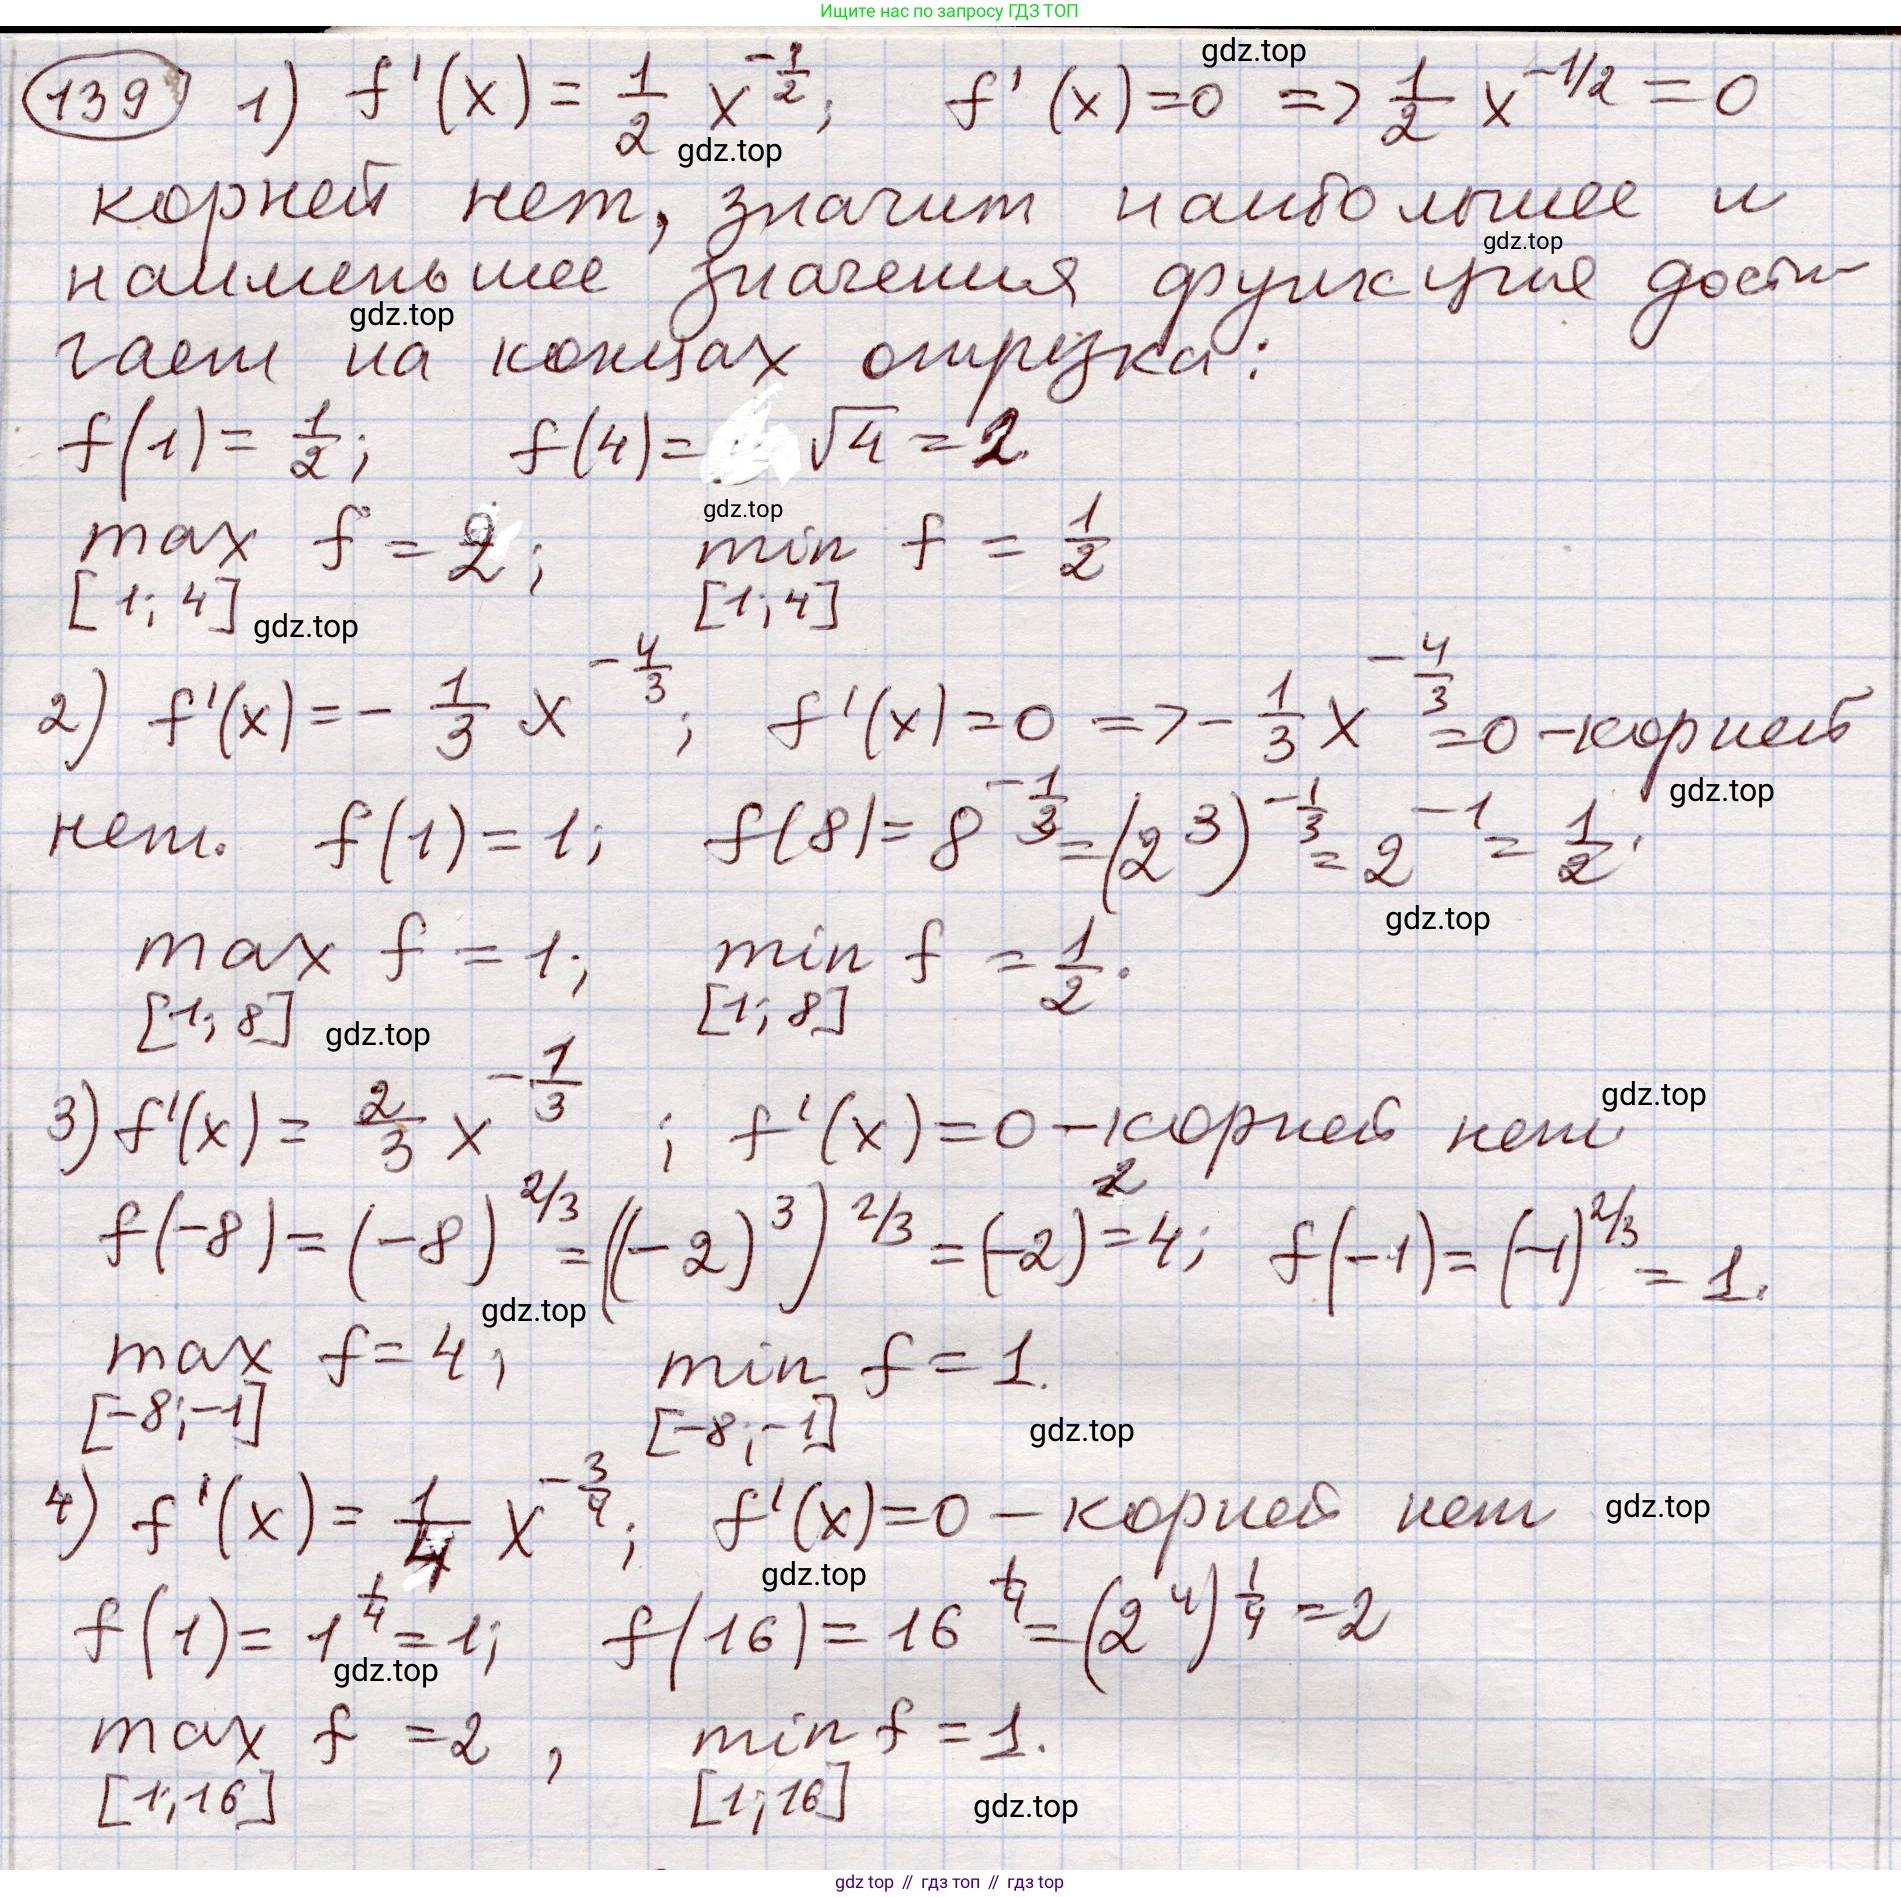 Ищите нас по запросу ГДЗ ТОП
gdz.top
139 1) f'(x) = 1/2 x^(-1/2); f'(x)=0 => 1/2 x^(-1/2) = 0
gdz.top
корней нет, значит наибольшее и
gdz.top
наименьшее значения функция дости-
gdz.top
гает на концах отрезка:
f(1) = 1/2; f(4) = √4 = 2.
gdz.top
max f = 2; min f = 1/2
[1; 4] [1; 4]
gdz.top
2) f'(x) = - 1/3 x^(-4/3); f'(x) = 0 => - 1/3 x^(-4/3) = 0 – корней
gdz.top
нет. f(1) = 1; f(8) = 8^(-1/3) = (2^3)^(-1/3) = 2^(-1) = 1/2.
gdz.top
max f = 1; min f = 1/2.
[1; 8] [1; 8]
gdz.top
3) f'(x) = 2/3 x^(-1/3); f'(x) = 0 – корней нет
gdz.top
f(-8) = (-8)^(2/3) = ((-2)^3)^(2/3) = (-2)^2 = 4; f(-1) = (-1)^(2/3) = 1.
gdz.top
max f = 4; min f = 1.
[-8; -1] [-8; -1]
gdz.top
4) f'(x) = 1/4 x^(-3/4); f'(x) = 0 – корней нет
gdz.top
gdz.top
f(1) = 1^(1/4) = 1; f(16) = 16^(1/4) = (2^4)^(1/4) = 2
gdz.top
max f = 2, min f = 1.
[1; 16] [1; 16]
gdz.top
gdz top // гдз топ // гдз top